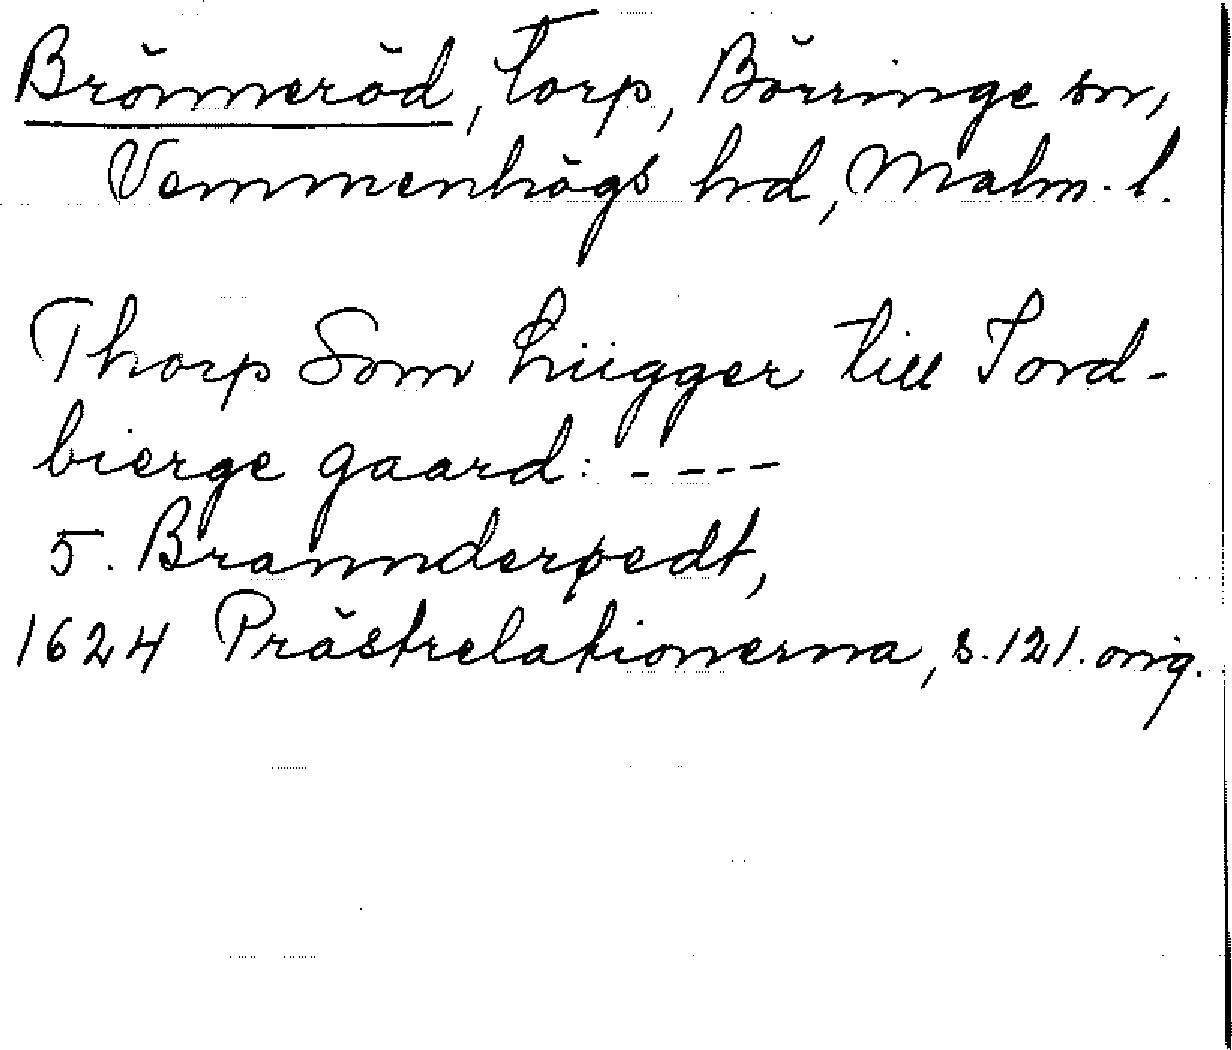 Brönneröd, torp, Börringe sn,
Vemmenhögs hd, Malm. l.
Thorp Som liigger till Jord-
bierge gaard: - - - -
5. Brannderøedt,
1624 Prästrelationerna, s. 121. orig.